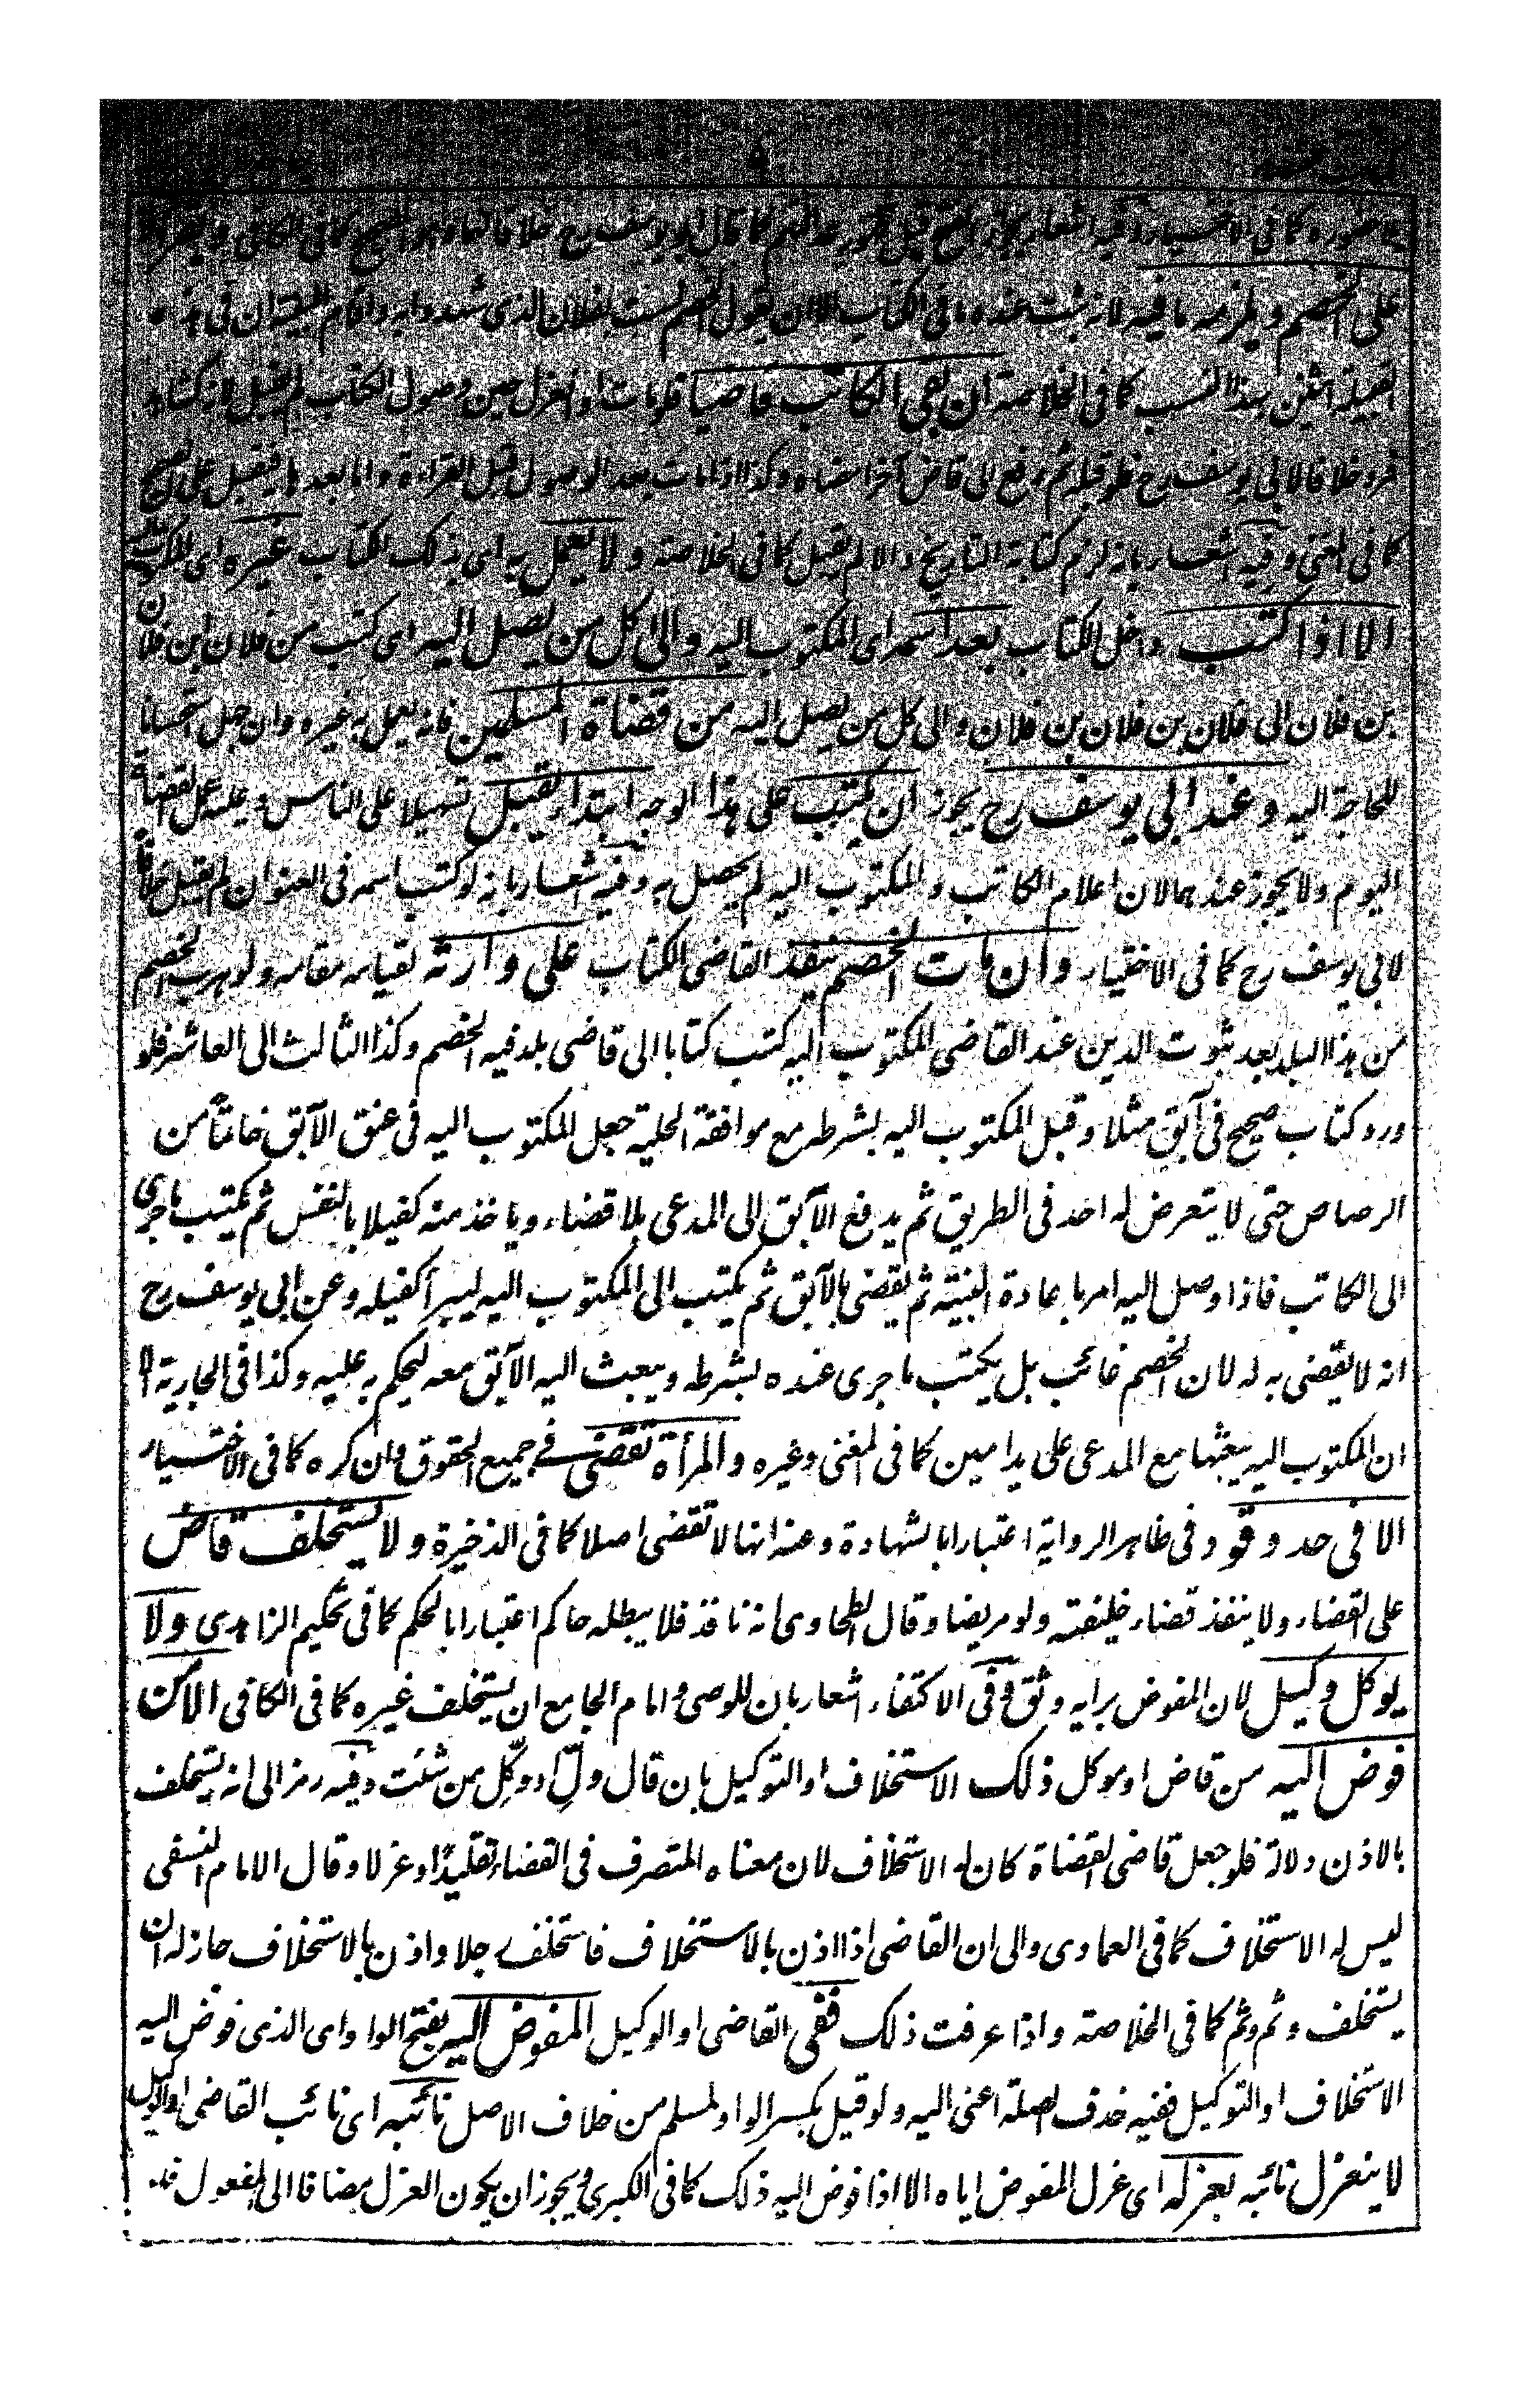 بلا حضوره كما فى الاختيار وفيه اشعار بانه لو فتح قبل حضور الخصم كما قال ابو يوسف رح خلافا لهما وهو الصحيح كما فى الكافى
على الخصم ويلزمه ما فيه لانه ثبت عنده ما فى الكتاب الا ان يقول الخصم لست بفلان الذى شهدوا به واقام البينة ان فى هذه
القبيلة اثنين بهذا النسب كما فى الخلاصة ان بقى الكاتب قاضيا فلو مات او انعزل حين وصول الكتاب لم يقبل لانه كشاهد
فرد خلافا لابى يوسف رح فلو قبله ثم رفع الى قاض آخر امضاه وكذا اذا مات بعد الوصول قبل القراءة واما بعدها فيقبل على الصحيح
كما فى المغنى وفيه اشعار بانه لزم كتابة التاريخ والا لم يقبل كما فى الخلاصة ولا يعمل به اى بذلك الكتاب غيره اى المكتوب اليه
الا اذا كتب داخل الكتاب بعد اسمه اى المكتوب اليه والى كل من يصل اليه اى كتب من فلان ابن فلان
بن فلان الى فلان بن فلان بن فلان والى كل من يصل اليه من قضاة المسلمين فانه يعمل به غيره وان جهل استحسانا
للحاجة اليه وعند ابى يوسف رح يجوز ان يكتب على هذا الوجه ابتداء يقبل تسهيلا على الناس وعليه عمل القضاة
اليوم ولا يجوز عندهما لان اعلام الكاتب والمكتوب اليه لم يحصل به وفيه اشعار بانه لو كتب اسمه فى العنوان لم يقبل خلافا
لابى يوسف رح كما فى الاختيار وان مات الخصم ينفذ القاضى الكتاب على وارثه لقيامه مقامه ولو هرب الخصم
من هذا البلد بعد ثبوت الدين عند القاضى المكتوب اليه كتب كتابا الى قاضى بلد فيه الخصم وكذا الثالث الى العاشر فلو
ورد كتاب صحيح فى آبق مثلا وقبل المكتوب اليه بشرطه مع موافقة الحلية جعل المكتوب اليه فى عنق الآبق خاتما من
الرصاص حتى لا يتعرض له احد فى الطريق ثم يدفع الآبق الى المدعى بلا قضاء وياخذ منه كفيلا بالنفس ثم يكتب ما جرى
الى الكاتب فاذا وصل اليه امر باعادة البينة ثم يقضى بالآبق ثم يكتب الى المكتوب اليه ليبرأ كفيله وعن ابى يوسف رح
انه لا يقضى به له لان الخصم غائب بل يكتب ما جرى عنده بشرطه ويبعث اليه الآبق معه ليحكم به عليه وكذا فى الجارية الا
ان المكتوب اليه يبعثها مع المدعى على يد امين كما فى المغنى وغيره والمرأة تقضى فى جميع الحقوق وان كره كما فى الاختيار
الا فى حد وقود وفى ظاهر الرواية اعتبارا بالشهادة وعنه انها لا تقضى اصلا كما فى الذخيرة ولا يستخلف قاض
على القضاء ولا ينفذ قضاء خليفته ولو مريضا وقال الطحاوى انه نافذ فلا يبطله حاكم اعتبارا بالحكم كما فى تحكيم الزاهدى ولا
يوكل وكيل لان المفوض برايه وثق وفى الاكتفاء اشعار بان للوصى وامام الجامع ان يستخلف غيره كما فى الكافى الا من
فوض اليه من قاض او موكل ذلك الاستخلاف او التوكيل بان قال ولِّ او وكِّل من شئت وفيه رمز الى انه يستخلف
بالاذن دلالة فلو جعل قاضى القضاة كان له الاستخلاف لان معناه المتصرف فى القضاء تقليدًا وعزلا وقال الامام النسفى
ليس له الاستخلاف كما فى العمادى والى ان القاضى اذا اذن بالاستخلاف فاستخلف رجلا واذن بالاستخلاف جاز له ان
يستخلف وثم وثم كما فى الخلاصة واذا عرفت ذلك ففى القاضى او الوكيل المفوض اليه بفتح الواو اى الذى فوض اليه
الاستخلاف او التوكيل ففيه حذف الصلة اعنى اليه ولو قيل بكسر الواو لمسلم من خلاف الاصل نائبه اى نائب القاضى او الوكيل
لا ينعزل نائبه بعزله اى عزل المفوض اياه الا اذا فوض اليه ذلك كما فى الكبرى ويجوز ان يكون العزل مضافا الى المفعول